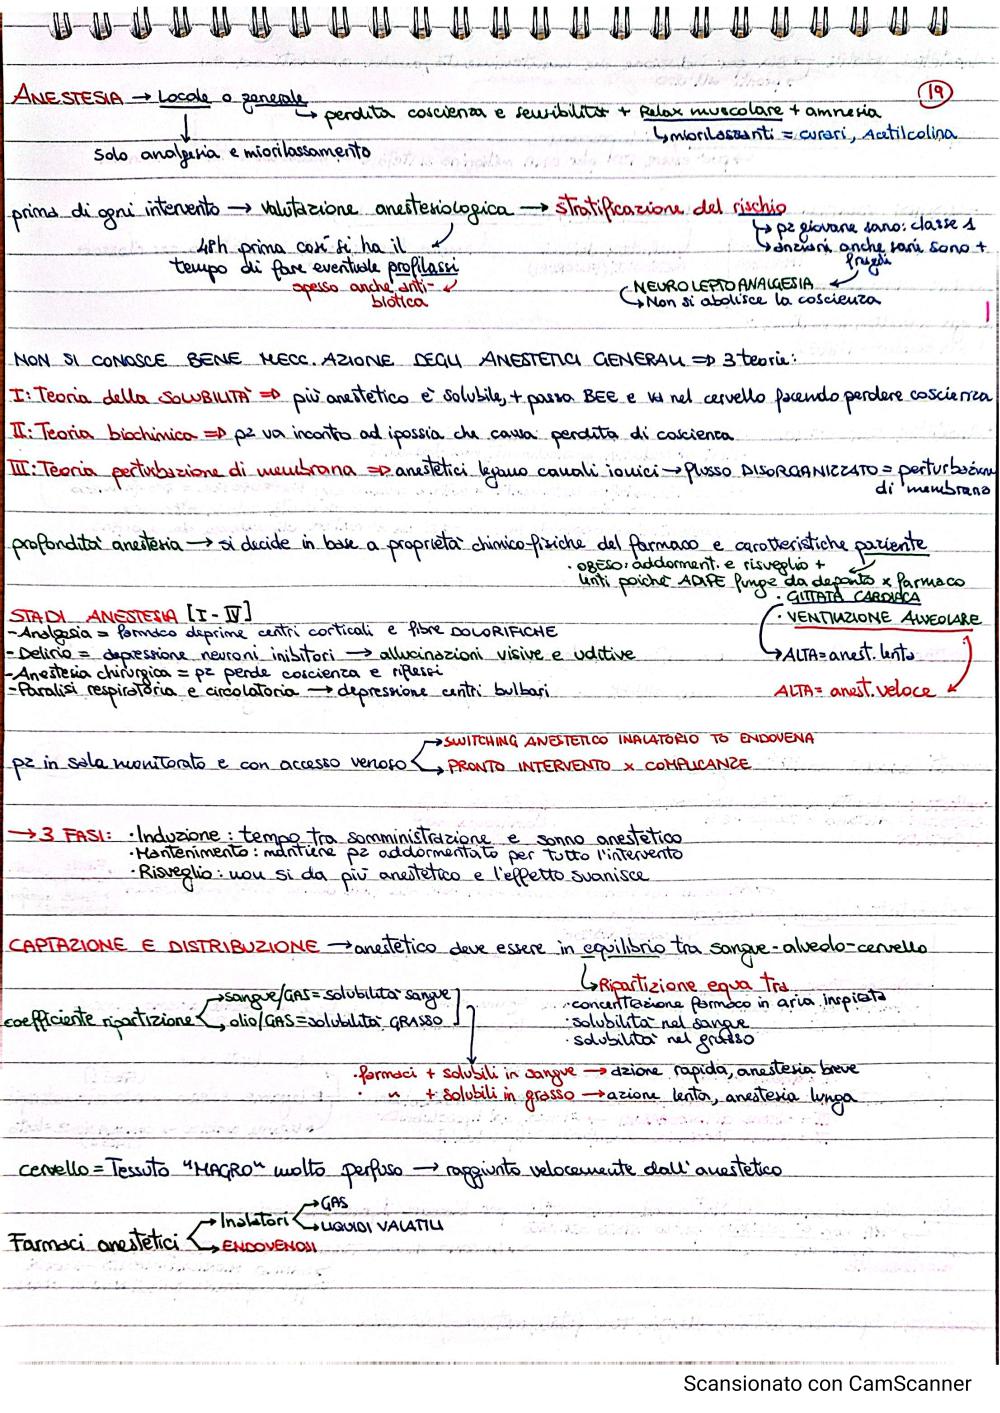 19
ANESTESIA → Locale o generale → perdita coscienza e sensibilità + Relax muscolare + amnesia
↳ miorilassanti = curari, Acetilcolina
Solo analgesia e miorilassamento
prima di ogni intervento → valutazione anestesiologica → stratificazione del rischio
↳ pz giovane sano: classe 1
48h prima così si ha il
↳ anziani anche sani sono +
fragili
tempo di fare eventuale profilassi
spesso anche anti-
biotica
NEUROLEPTOANALGESIA
↳ Non si abolisce la coscienza
NON SI CONOSCE BENE MECC. AZIONE DEGLI ANESTETICI GENERALI => 3 teorie:
I: Teoria della SOLUBILITÀ => più anestetico è solubile, + passa BEE e va nel cervello facendo perdere coscienza
II: Teoria biochimica => pz va incontro ad ipossia che causa perdita di coscienza
III: Teoria perturbazione di membrana => anestetici legano canali ionici → flusso DISORGANIZZATO = perturbazione
di membrana
profondità anestesia → si decide in base a proprietà chimico-fisiche del farmaco e caratteristiche paziente
· OBESO: addorment. e risveglio +
lenti poiché ADIPE funge da deposito x farmaco
· GITTATA CARDIACA
STADI ANESTESIA [I-IV]
· VENTILAZIONE ALVEOLARE
- Analgesia = farmaco deprime centri corticali e fibre DOLORIFICHE
- Delirio = depressione neuroni inibitori → allucinazioni visive e uditive
↳ ALTA = anest. lenta
- Anestesia chirurgica = pz perde coscienza e riflessi
- Paralisi respiratoria e circolatoria → depressione centri bulbari
ALTA = anest. veloce
pz in sala monitorato e con accesso venoso
→ SWITCHING ANESTETICO INALATORIO TO ENDOVENA
→ PRONTO INTERVENTO x COMPLICANZE
→ 3 FASI: · Induzione : tempo tra somministrazione e sonno anestetico
· Mantenimento : mantiene pz addormentato per tutto l'intervento
· Risveglio : non si da più anestetico e l'effetto svanisce
CAPTAZIONE E DISTRIBUZIONE → anestetico deve essere in equilibrio tra sangue-alveolo-cervello
↳ Ripartizione equa tra
· concentrazione farmaco in aria inspirata
· solubilità nel sangue
· solubilità nel grasso
coefficiente ripartizione
→ sangue/GAS = solubilità sangue
→ olio/GAS = solubilità GRASSO
· farmaci + solubili in sangue → azione rapida, anestesia breve
· " + solubili in grasso → azione lenta, anestesia lunga
cervello = Tessuto "MAGRO" molto perfuso → raggiunto velocemente dall'anestetico
Farmaci anestetici
→ Inalatori
→ GAS
→ LIQUIDI VALATILI
→ ENDOVENOSI
Scansionato con CamScanner